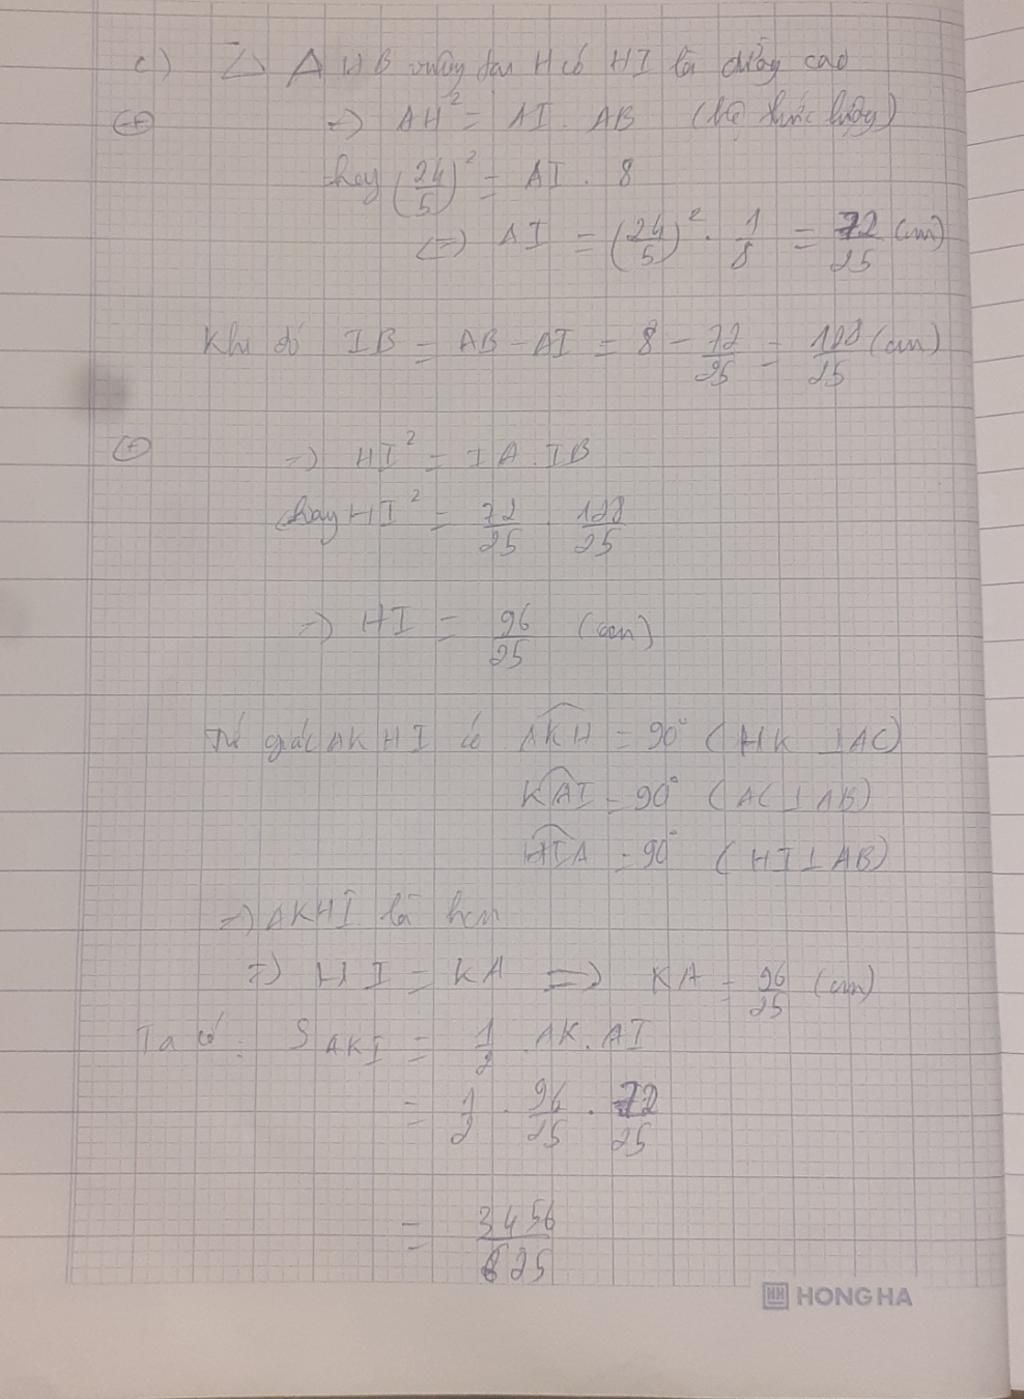 c) △ AHB vuông tại H có HI là đường cao
(+) => AH² = AI . AB (hệ thức lượng)
hay (24/5)² = AI . 8
(=) AI = (24/5)² . 1/8 = 72/25 (cm)
Khi đó IB = AB - AI = 8 - 72/25 = 128/25 (cm)
(+) => HI² = IA . IB
hay HI² = 72/25 . 128/25
=> HI = 96/25 (cm)
Tứ giác AKHI có AKH = 90° (HK ⊥ AC)
KAI = 90° (AC ⊥ AB)
HIA = 90° (HI ⊥ AB)
=> AKHI là hcn
=> HI = KA => KA = 96/25 (cm)
Ta có: S AKI = 1/2 . AK . AI
= 1/2 . 96/25 . 72/25
= 3456/625
HONG HA